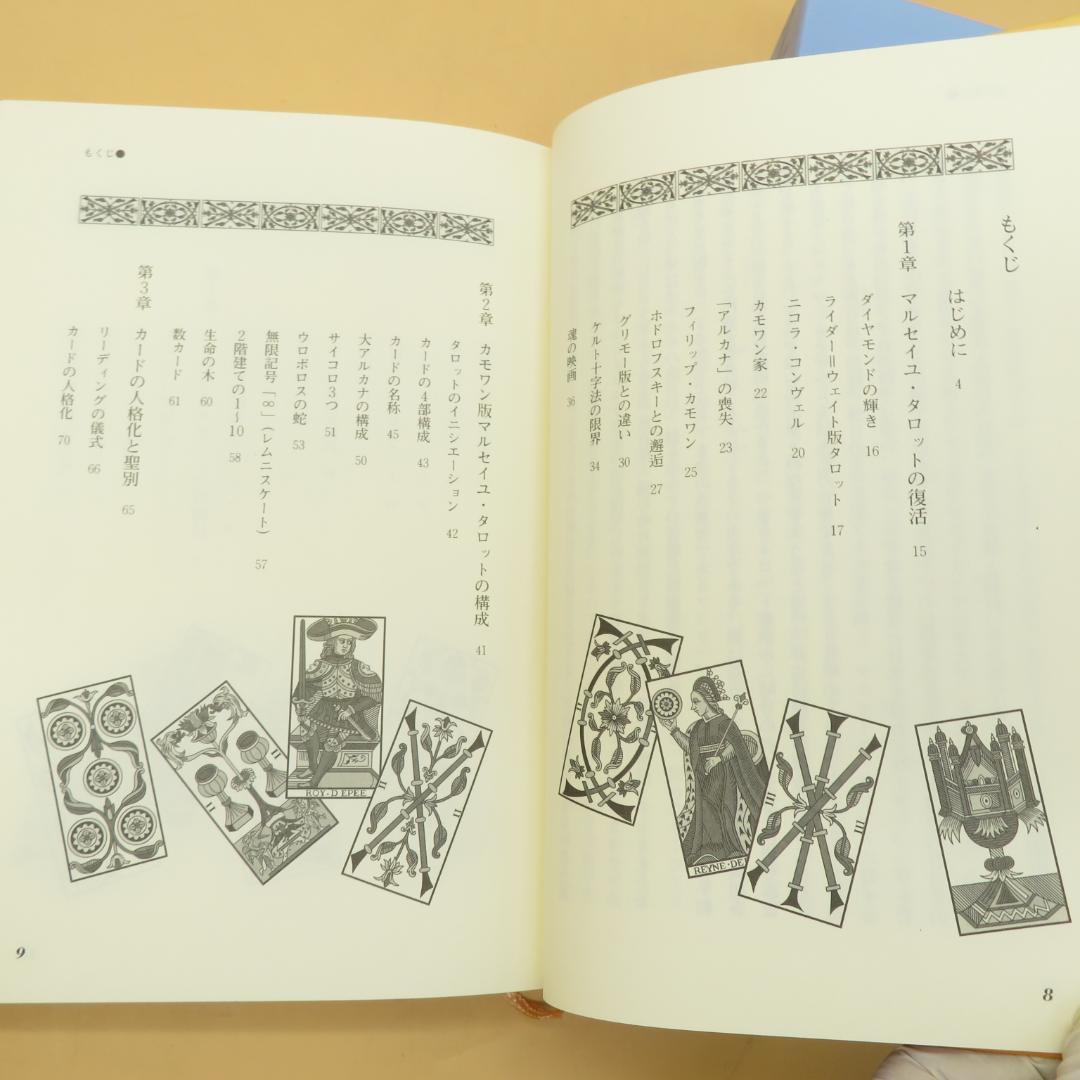 もくじ
はじめに 4
第1章 マルセイユ・タロットの復活 15
ダイヤモンドの輝き 16
ライダー＝ウェイト版タロット 17
ニコラ・コンヴェル 20
カモワン家 22
「アルカナ」の喪失 23
フィリップ・カモワン 25
ホドロフスキーとの邂逅 27
グリモー版との違い 30
ケルト十字法の限界 34
魂の映画 36
REYNE·DE
III
III
8
もくじ●
第2章 カモワン版マルセイユ・タロットの構成 41
タロットのイニシエーション 42
カードの4部構成 43
カードの名称 45
大アルカナの構成 50
サイコロ3つ 51
ウロボロスの蛇 53
無限記号「∞」(レムニスケート) 57
2階建ての1〜10 58
生命の木 60
数カード 61
第3章 カードの人格化と聖別 65
リーディングの儀式 66
カードの人格化 70
ROY·D EPEE
II
II
II
II
9